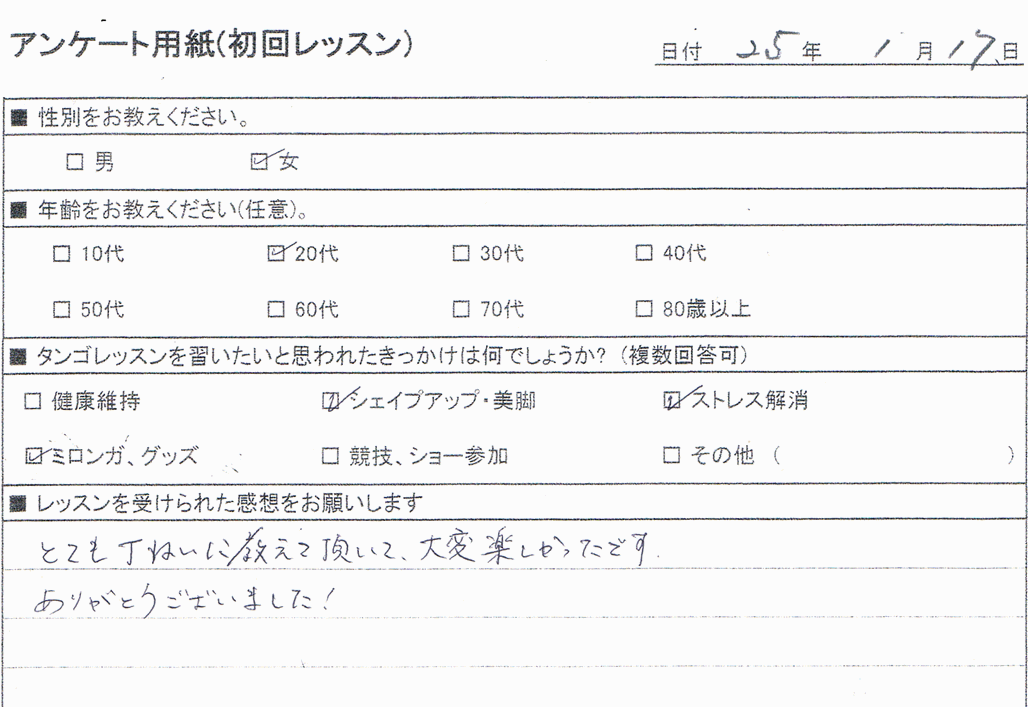 アンケート用紙(初回レッスン)
日付 25年 1月17日
■ 性別をお教えください。
□ 男 ☑ 女
■ 年齢をお教えください(任意)。
□ 10代 ☑ 20代 □ 30代 □ 40代
□ 50代 □ 60代 □ 70代 □ 80歳以上
■ タンゴレッスンを習いたいと思われたきっかけは何でしょうか? (複数回答可)
□ 健康維持 ☑ シェイプアップ・美脚 ☑ ストレス解消
☑ ミロンガ、グッズ □ 競技、ショー参加 □ その他 ( )
■ レッスンを受けられた感想をお願いします
とても丁ねいに教えて頂いて、大変楽しかったです.
ありがとうございました!